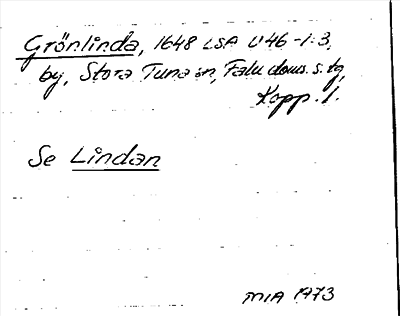 Grönlinda, 1648 LSA U46-1:3,
by, Stora Tuna sn, Falu doms. s. tg,
Kopp. l.
Se Lindan
MIA 1973